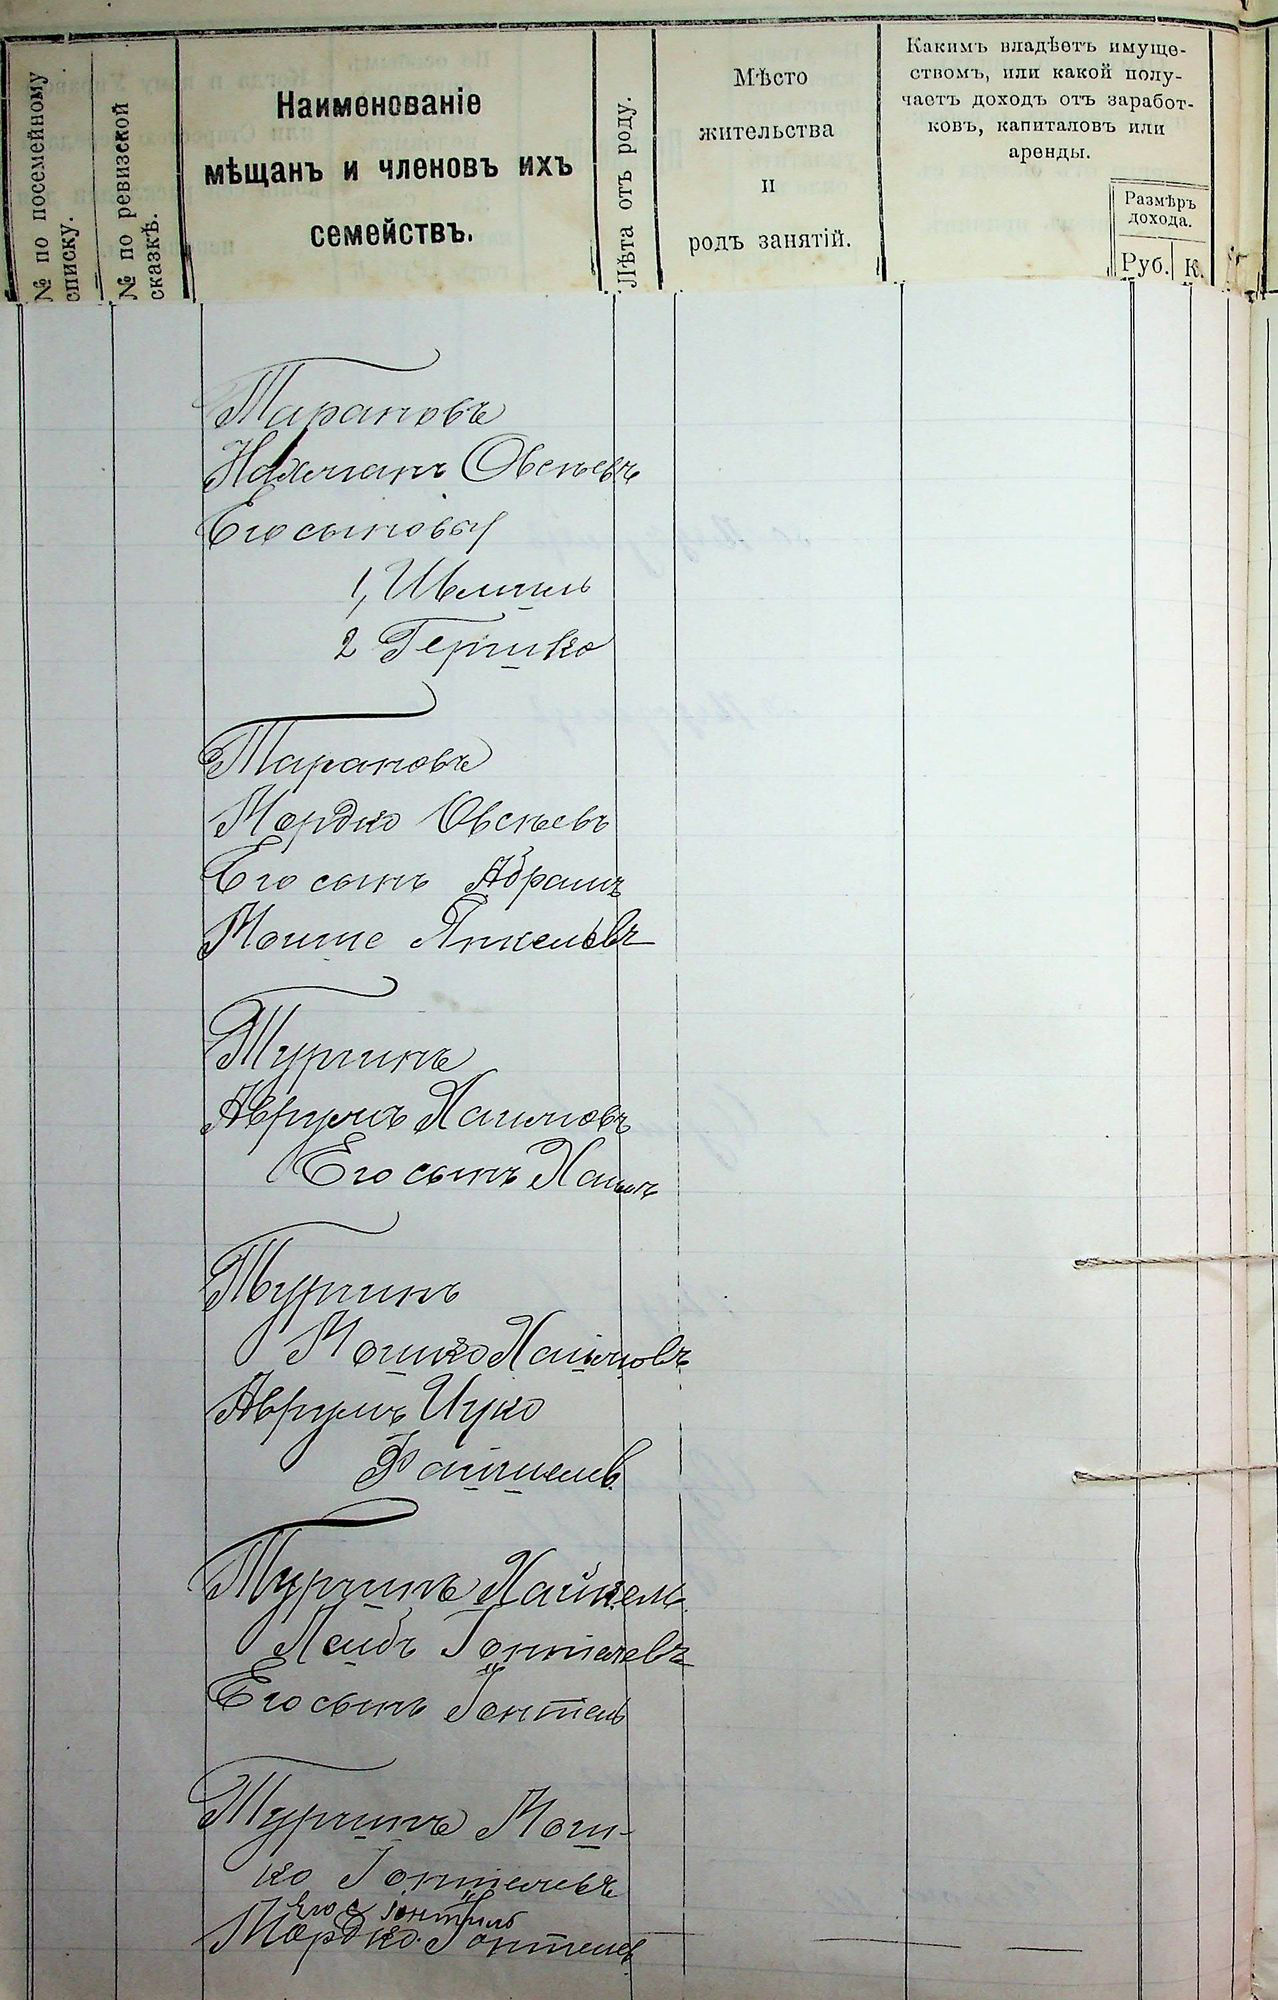 № по посемейному
списку.
№ по ревизской
сказкѣ.
Наименованіе
мѣщанъ и членовъ ихъ
семействъ.
Лѣта отъ роду.
Мѣсто
жительства
и
родъ занятій.
Какимъ владѣетъ имуще-
ствомъ, или какой полу-
чаетъ доходъ отъ заработ-
ковъ, капиталовъ или
аренды.
Размѣръ
дохода.
Руб. К.
Тарановъ
Нахманъ Овсѣевъ
Его сыновья
1, Шмуль
2 Гершко
Тарановъ
Мордко Овсѣевъ
Его сынъ Абрамъ
Мошие Янкелевъ
Турчинъ
Аврумъ Хаимовъ
Его сынъ Хаимъ
Турчинъ
Мошко Хаимовъ
Аврумъ Ицко
Файшелев.
Турчинъ Хайкель
Лейбъ Іонтелевъ
Его сынъ Іонтель
Турчинъ Мош-
ко Іонтелевъ
Его с Іонтель
Мордко Іонтелев